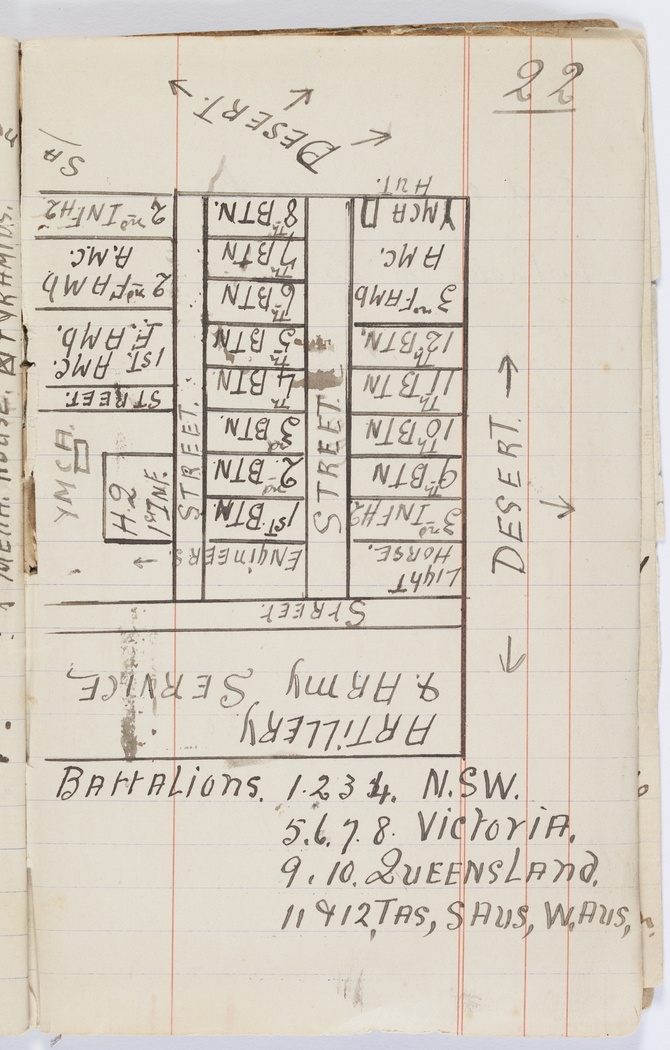 22
DESERT.
SA/
HUT.
2nd INF H2
8th BTN.
YMCA
7th BTN
AMC.
2nd F AMb
A.M.C.
6th BTN
3rd FAMb
1ST. AMC.
F. AMb.
5th BTN
12th BTN.
4th BTN
11th BTN
STREET.
3rd BTN
10th BTN
YMCA.
H.Q
1st INF.
2nd BTN
9th BTN
1ST. BTN
3rd INF H2
ENgiNEERS
Light
HORSE.
STREET.
STREET.
DESERT.
STREET.
ARTiLLERY
& ARmy SERVICE
BATTALIONS. 1.2 3 4. N.SW.
5.6.7.8. VicToriA.
9.10. QUEENSLAnd.
11 & 12, TAS, SAUS, W.AUS,
MENA. HOUSE.
PYRAMIDS.